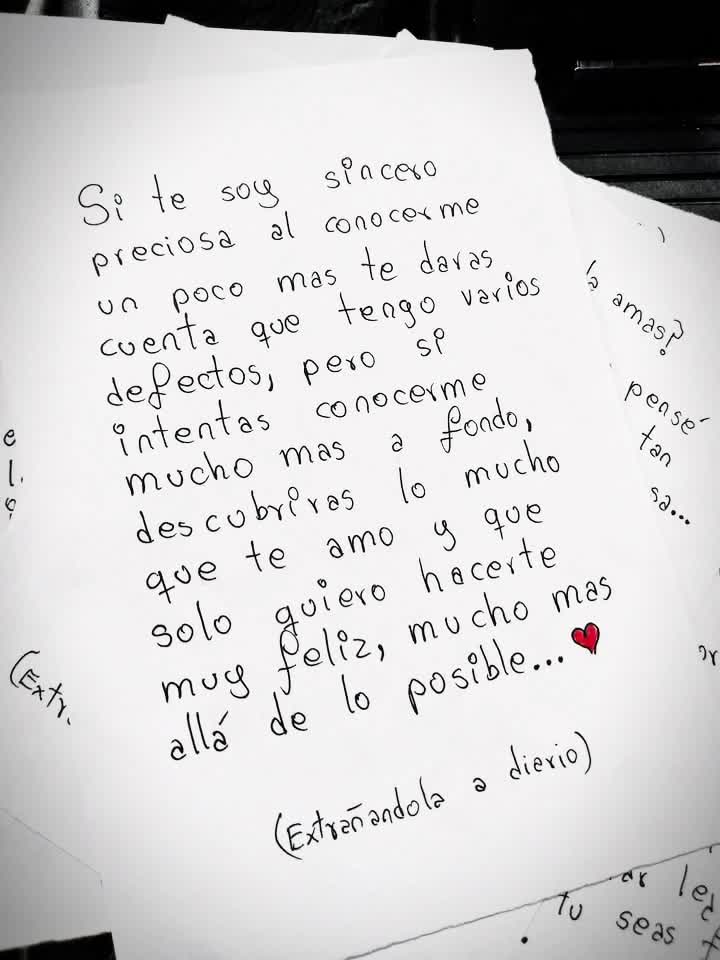 Si te soy sincero
preciosa al conocerme
un poco mas te daras
cuenta que tengo varios
defectos, pero si
intentas conocerme
mucho mas a fondo,
descubriras lo mucho
que te amo y que
solo quiero hacerte
muy feliz, mucho mas
allá de lo posible... ♥
(Extrañandola a dierio)
amas?
pensé
tan
sa...
e
l.
(Extr.
ar
tu seas